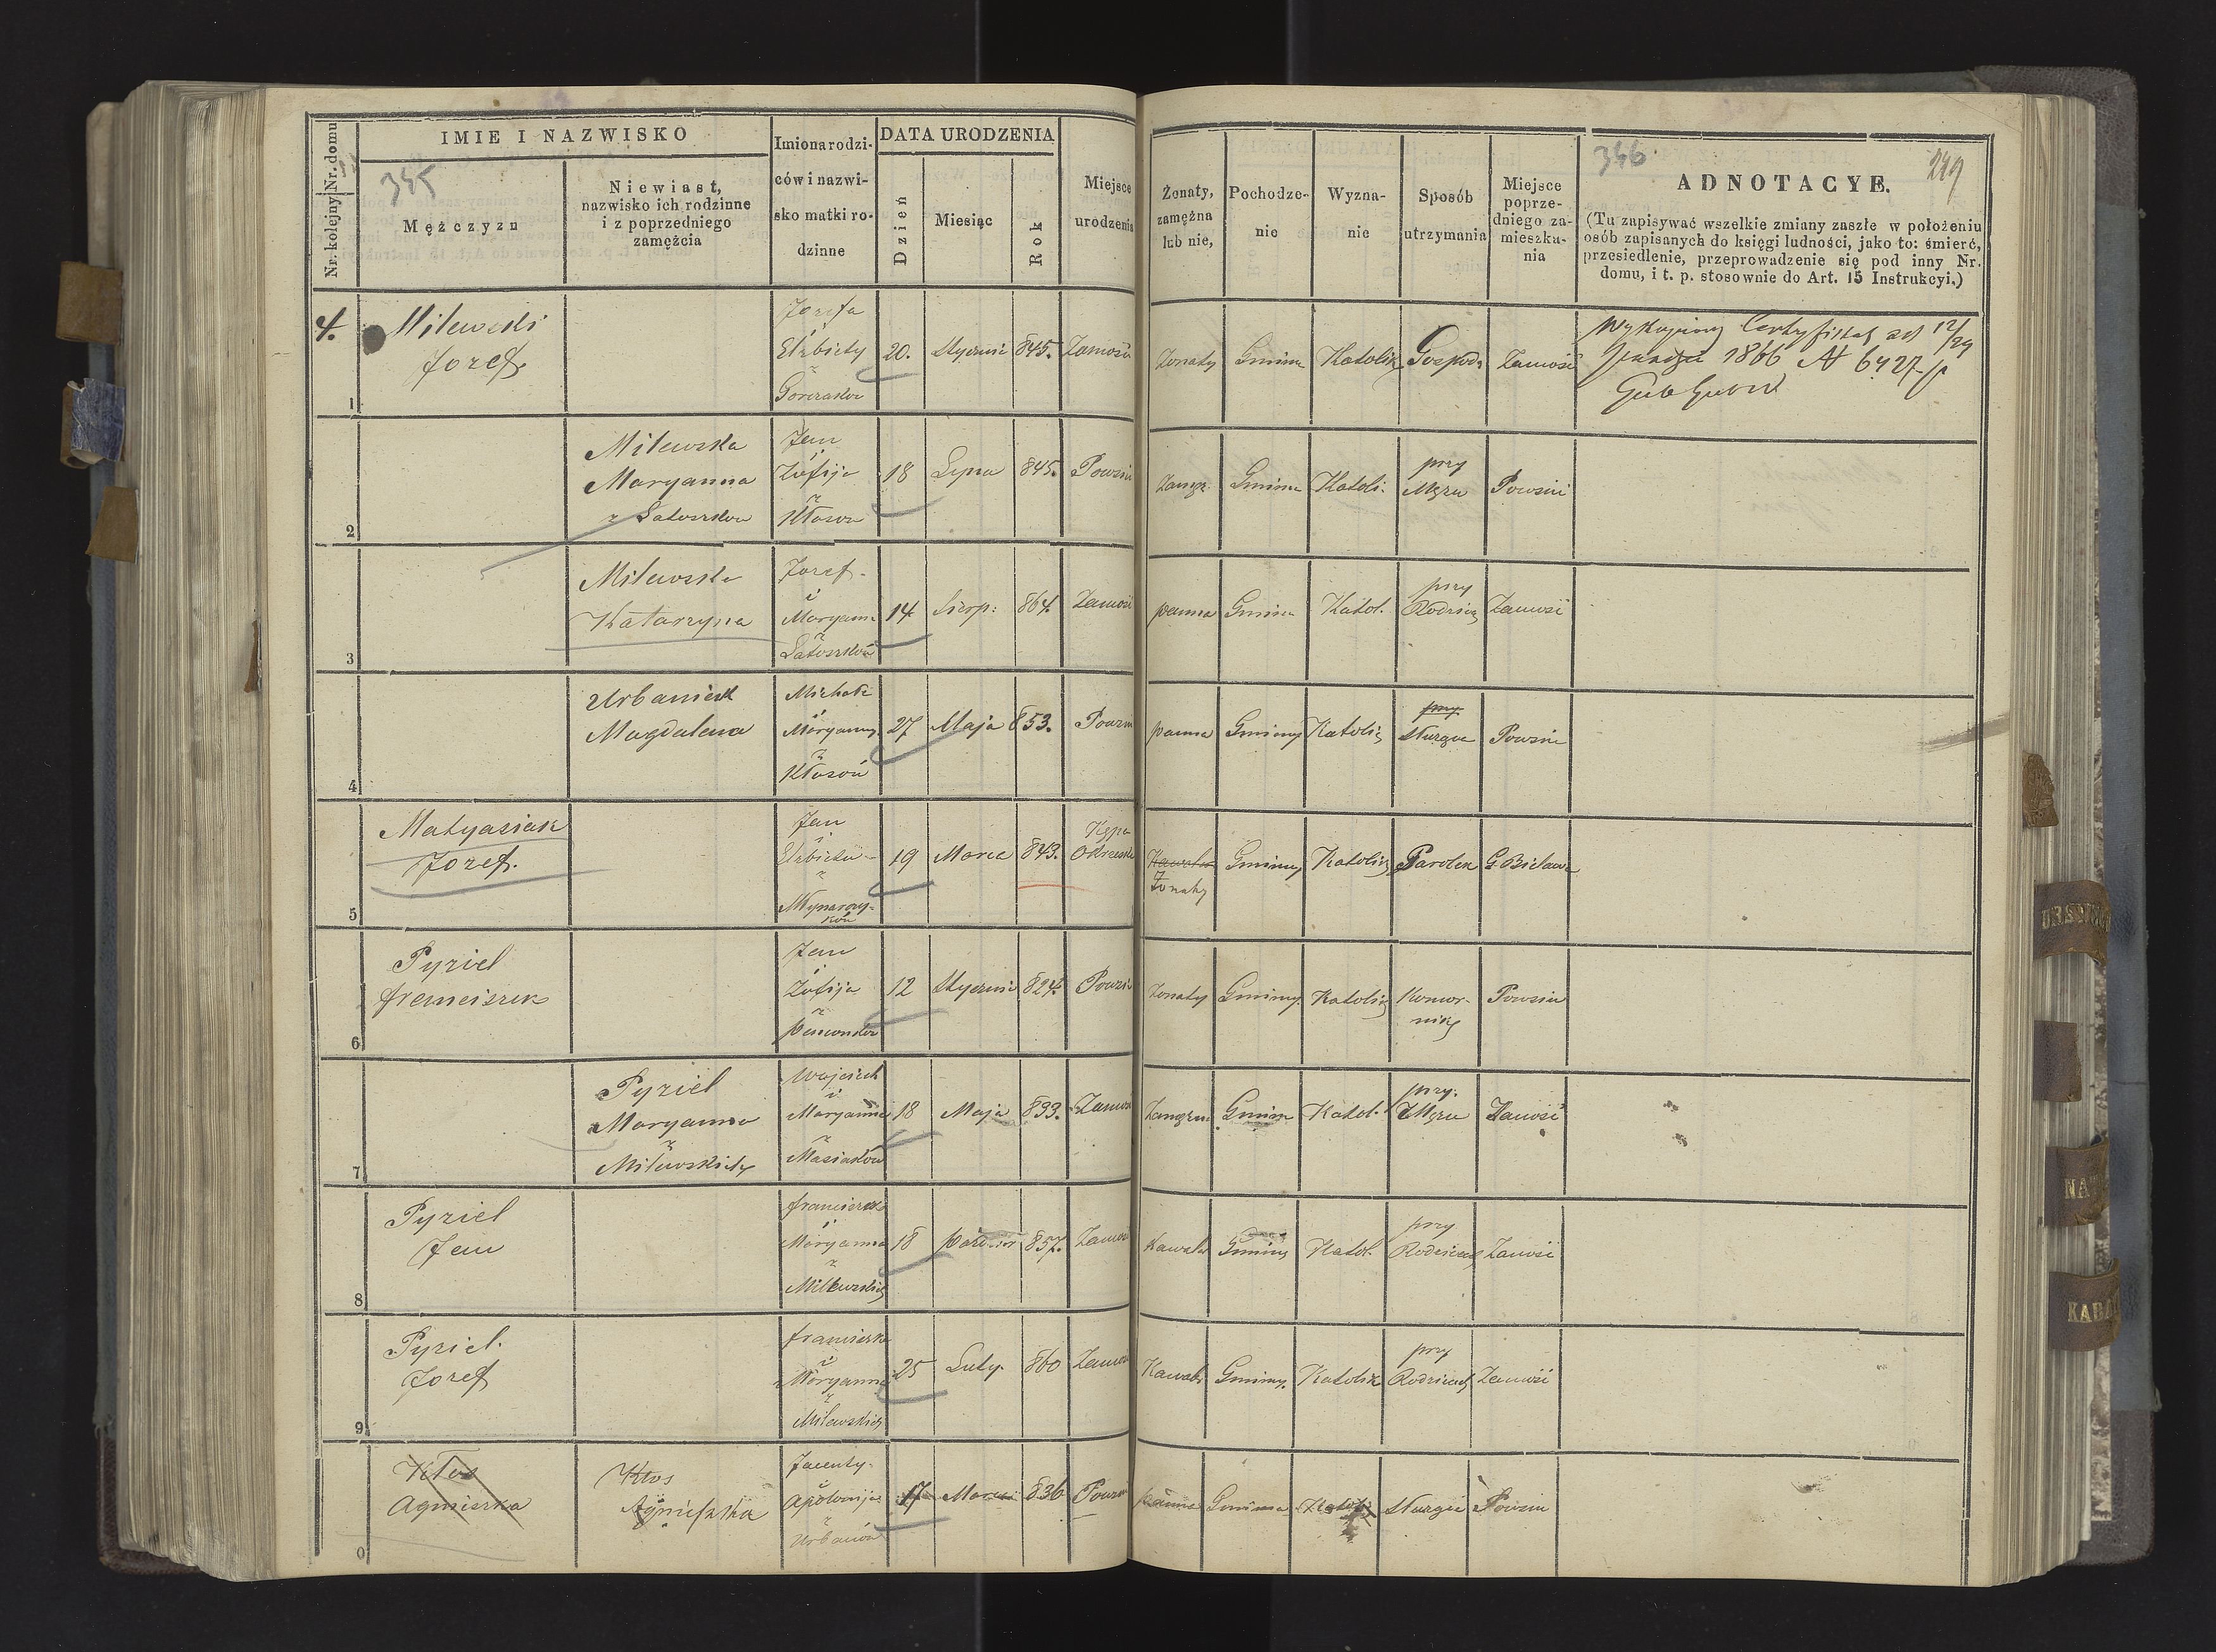 Nr. kolejny Nr. domu
IMIE I NAZWISKO
345
Mężczyzn
Niewiast,
nazwisko ich rodzinne
i z poprzedniego
zamężcia
Imiona rodzi-
ców i nazwi-
sko matki ro-
dzinne
DATA URODZENIA
Dzień
Miesiąc
Rok
Miejsce
urodzenia
Żonaty,
zamężna
lub nie,
Pochodze-
nie
Wyzna-
nie
Sposób
utrzymania
Miejsce
poprze-
dniego za-
mieszka-
nia
346
249
ADNOTACYE.
(Tu zapisywać wszelkie zmiany zaszłe w położeniu
osób zapisanych do księgi ludności, jako to: śmierć,
przesiedlenie, przeprowadzenie się pod inny Nr.
domu, i t. p. stosownie do Art. 15 Instrukcyi.)
4.
1
Milewski
Jozef
Jozefa
i
Elzbiety
z
20.
845.
Zamość
Zonaty
Gmina
Katolik
Gospod.
Zamość
1866 № 6427
2
Milewska
Maryanna
Jan
i
Zofija
z
Kłosow
18
Lipca
845.
Powsin
Gmina
Katoli.
przy
Mężu
Powsin
3
Milewska
Katarzyna
Jozef
i
Maryanna
z
14
Sierp:
864.
Zamość
panna
Gmina
Katol.
przy
Rodzicach
Zamość
4
Urbaniak
Magdalena
Michał
i
Maryanny
z
Kłosow
27
Maja
853.
Powsin
panna
Gminy
Katolic
przy
Sługa
Powsin
5
Matyasiak
Jozef.
Jan
i
Elzbieta
z
19
Marca
843.
Kępa
Kawaler
Zonaty
Gminy
Katolic
Parobek
G. Bielawa
6
Pyziel
Franciszek
Jan
i
Zofija
z
12
824.
Powsin
Zonaty
Gminy.
Katolic
Komor-
nik
Powsin
7
Pyziel
Maryanna
z
Milewskich
Wojciech
i
Maryanna
z
Masiaków
18
Maja
833.
Zamość
Gmina
Katol.
przy
Mężu
Zamość
8
Pyziel
Jan
Franciszek
i
Maryanna
z
Milewskich
18
857.
Zamość
Kawaler
Gminy
Katol.
przy
Rodzicach
Zamość
9
Pyziel.
Jozef
Franciszka
i
Maryanna
z
Milewskich
25
Luty.
860
Zamość
Kawaler
Gminy.
Katolik
przy
Rodzicach
Zamość
0
Kłos
Agnieszka
Kłos
Agnieszka
Jacenty
i
Apolonija
z
Urbanów
17
Marca
836
Powsin
panna
Gmina
Sługa
Powsin
NA
KABA